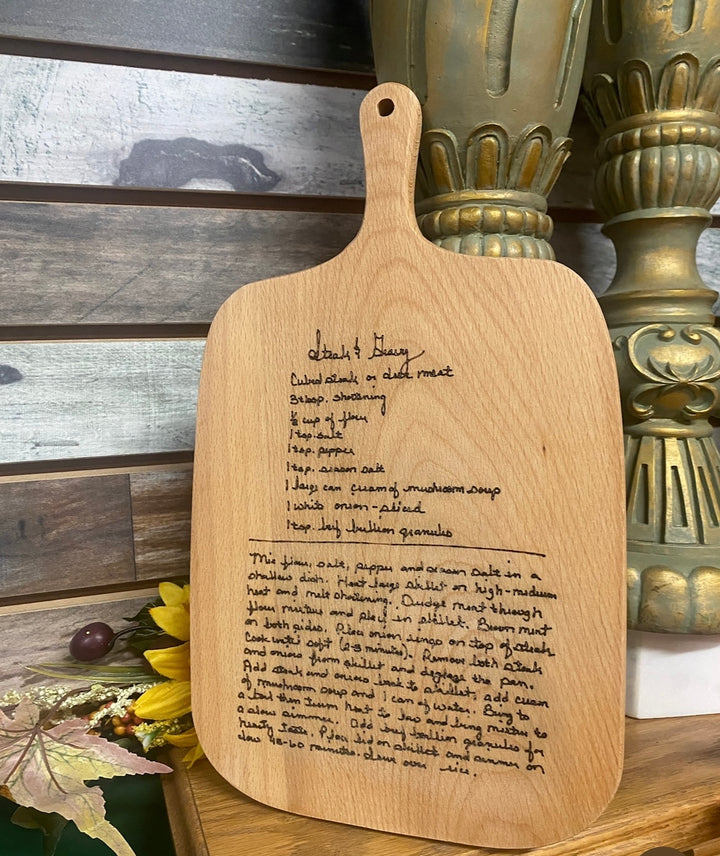 Steak & Gravy
Cubed steak or deer meat
3 tbsp. shortening
½ cup of flour
1 tsp. salt
1 tsp. pepper
1 tsp. season salt
1 large can cream of mushroom soup
1 white onion - sliced
1 tsp. beef bullion granules
Mix flour, salt, pepper and season salt in a
shallow dish. Heat large skillet on high-medium
heat and melt shortening. Dudge meat through
flour mixture and place in skillet. Brown meat
on both sides. Place onion rings on top of steak
Cook until soft (2-3 minutes). Remove both steak
and onions from skillet and deglaze the pan.
Add steak and onions back to skillet, add cream
of mushroom soup and 1 can of water. Bring to
a boil then turn heat to low and bring mixture to
a slow simmer. Add beef bullion granules for
hearty taste. Place lid on skillet and simmer on
low 45-60 minutes. Serve over rice.